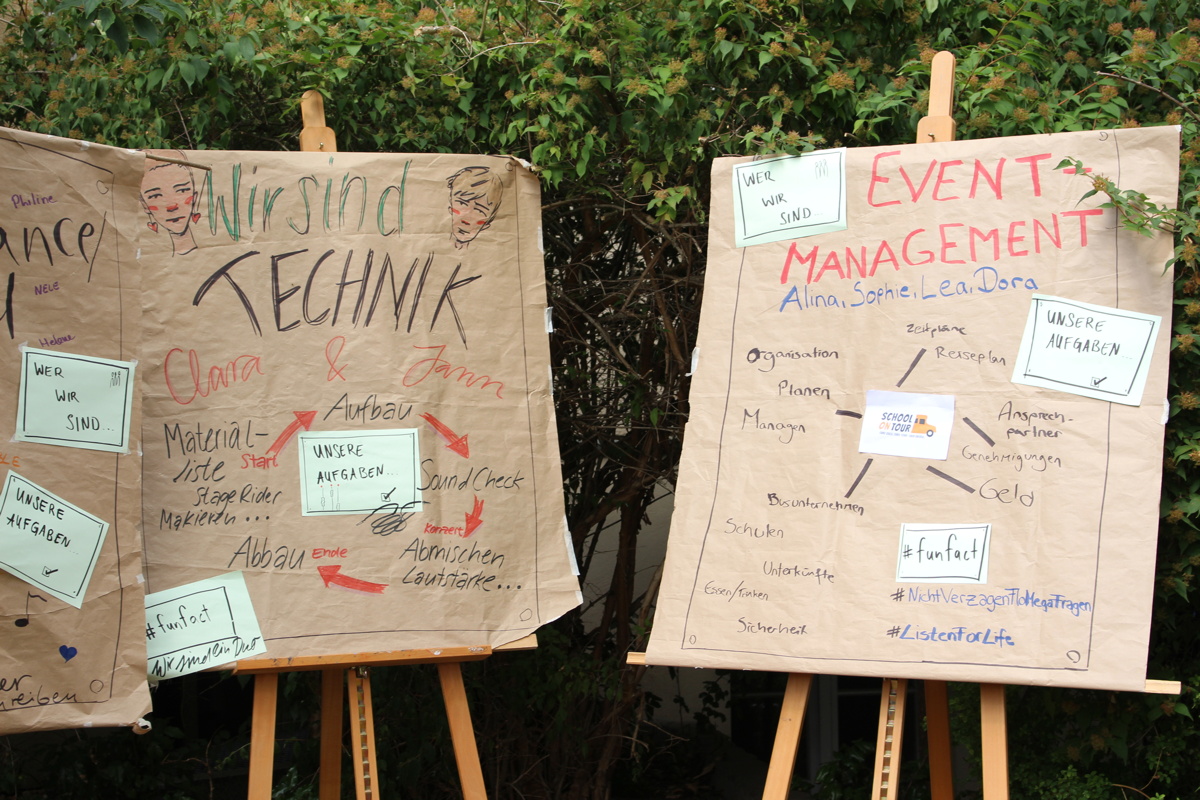 Pauline
ance/
NELE
Helene
WER
WIR
SIND...
UNSERE
AUFGABEN...
reiben
Wir sind
TECHNIK
Clara & Jann
Aufbau
Material-
liste
Start
Stage Rider
Makieren ...
UNSERE
AUFGABEN...
Sound Check
Konzert
Abmischen
Lautstärke...
Abbau Ende
#funfact
Wir sind ein Duo
WER
WIR
SIND...
EVENT-
MANAGEMENT
Alina, Sophie, Lea, Dora
UNSERE
AUFGABEN...
Zeitpläne
Reiseplan
Organisation
Planen
Managen
SCHOOL
ON
TOUR
Ansprech-
partner
Genehmigungen
Geld
Busunternehmen
Schulen
Unterkünfte
Essen/Trinken
Sicherheit
#funfact
#NichtVerzagenFloMegaFragen
#ListenForLife